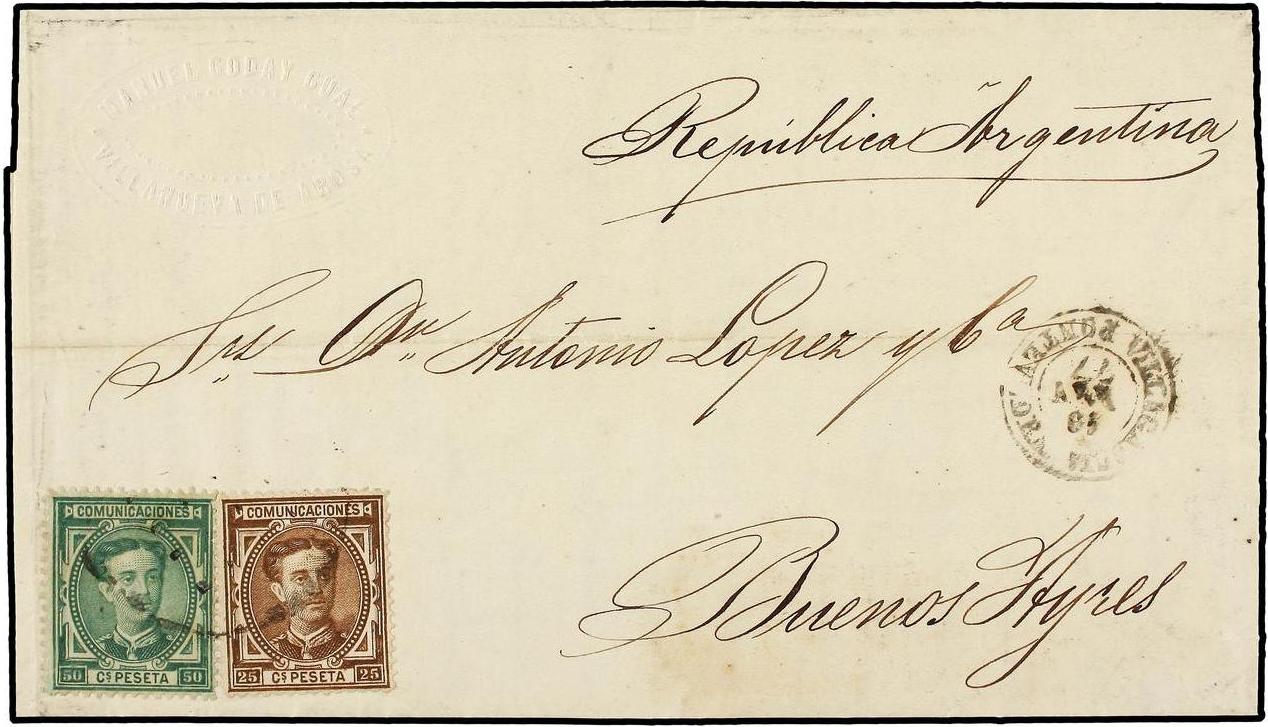 MANUEL GODAY GUAL
VILLANUEVA DE AROSA
República Argentina
Srs Dn. Antonio Lopez y Ca
Buenos Ayres
77
COMUNICACIONES
50 Cs PESETA 50
COMUNICACIONES
25 Cs PESETA 25